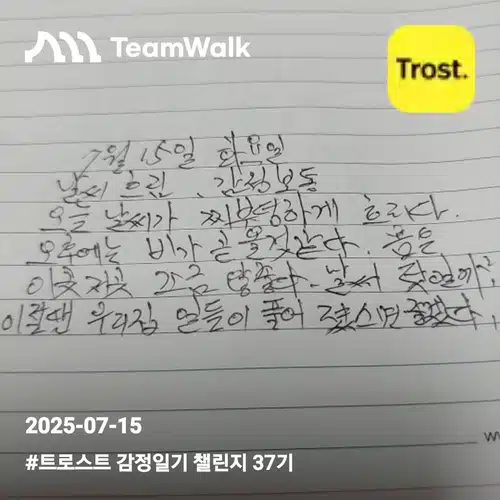 TeamWalk
Trost.
7월 15일 화요일
날씨 흐림 . 감정보통
오늘 날씨가 찌뿌둥하게 흐리다.
오후에는 비가 곧 올것같다. 몸도
이곳저곳 조금 안좋다. 날씨 탓일까?
이럴땐 우리집 일들이 풀어 졌스면 좋겠다.
ww
2025-07-15
#트로스트 감정일기 챌린지 37기